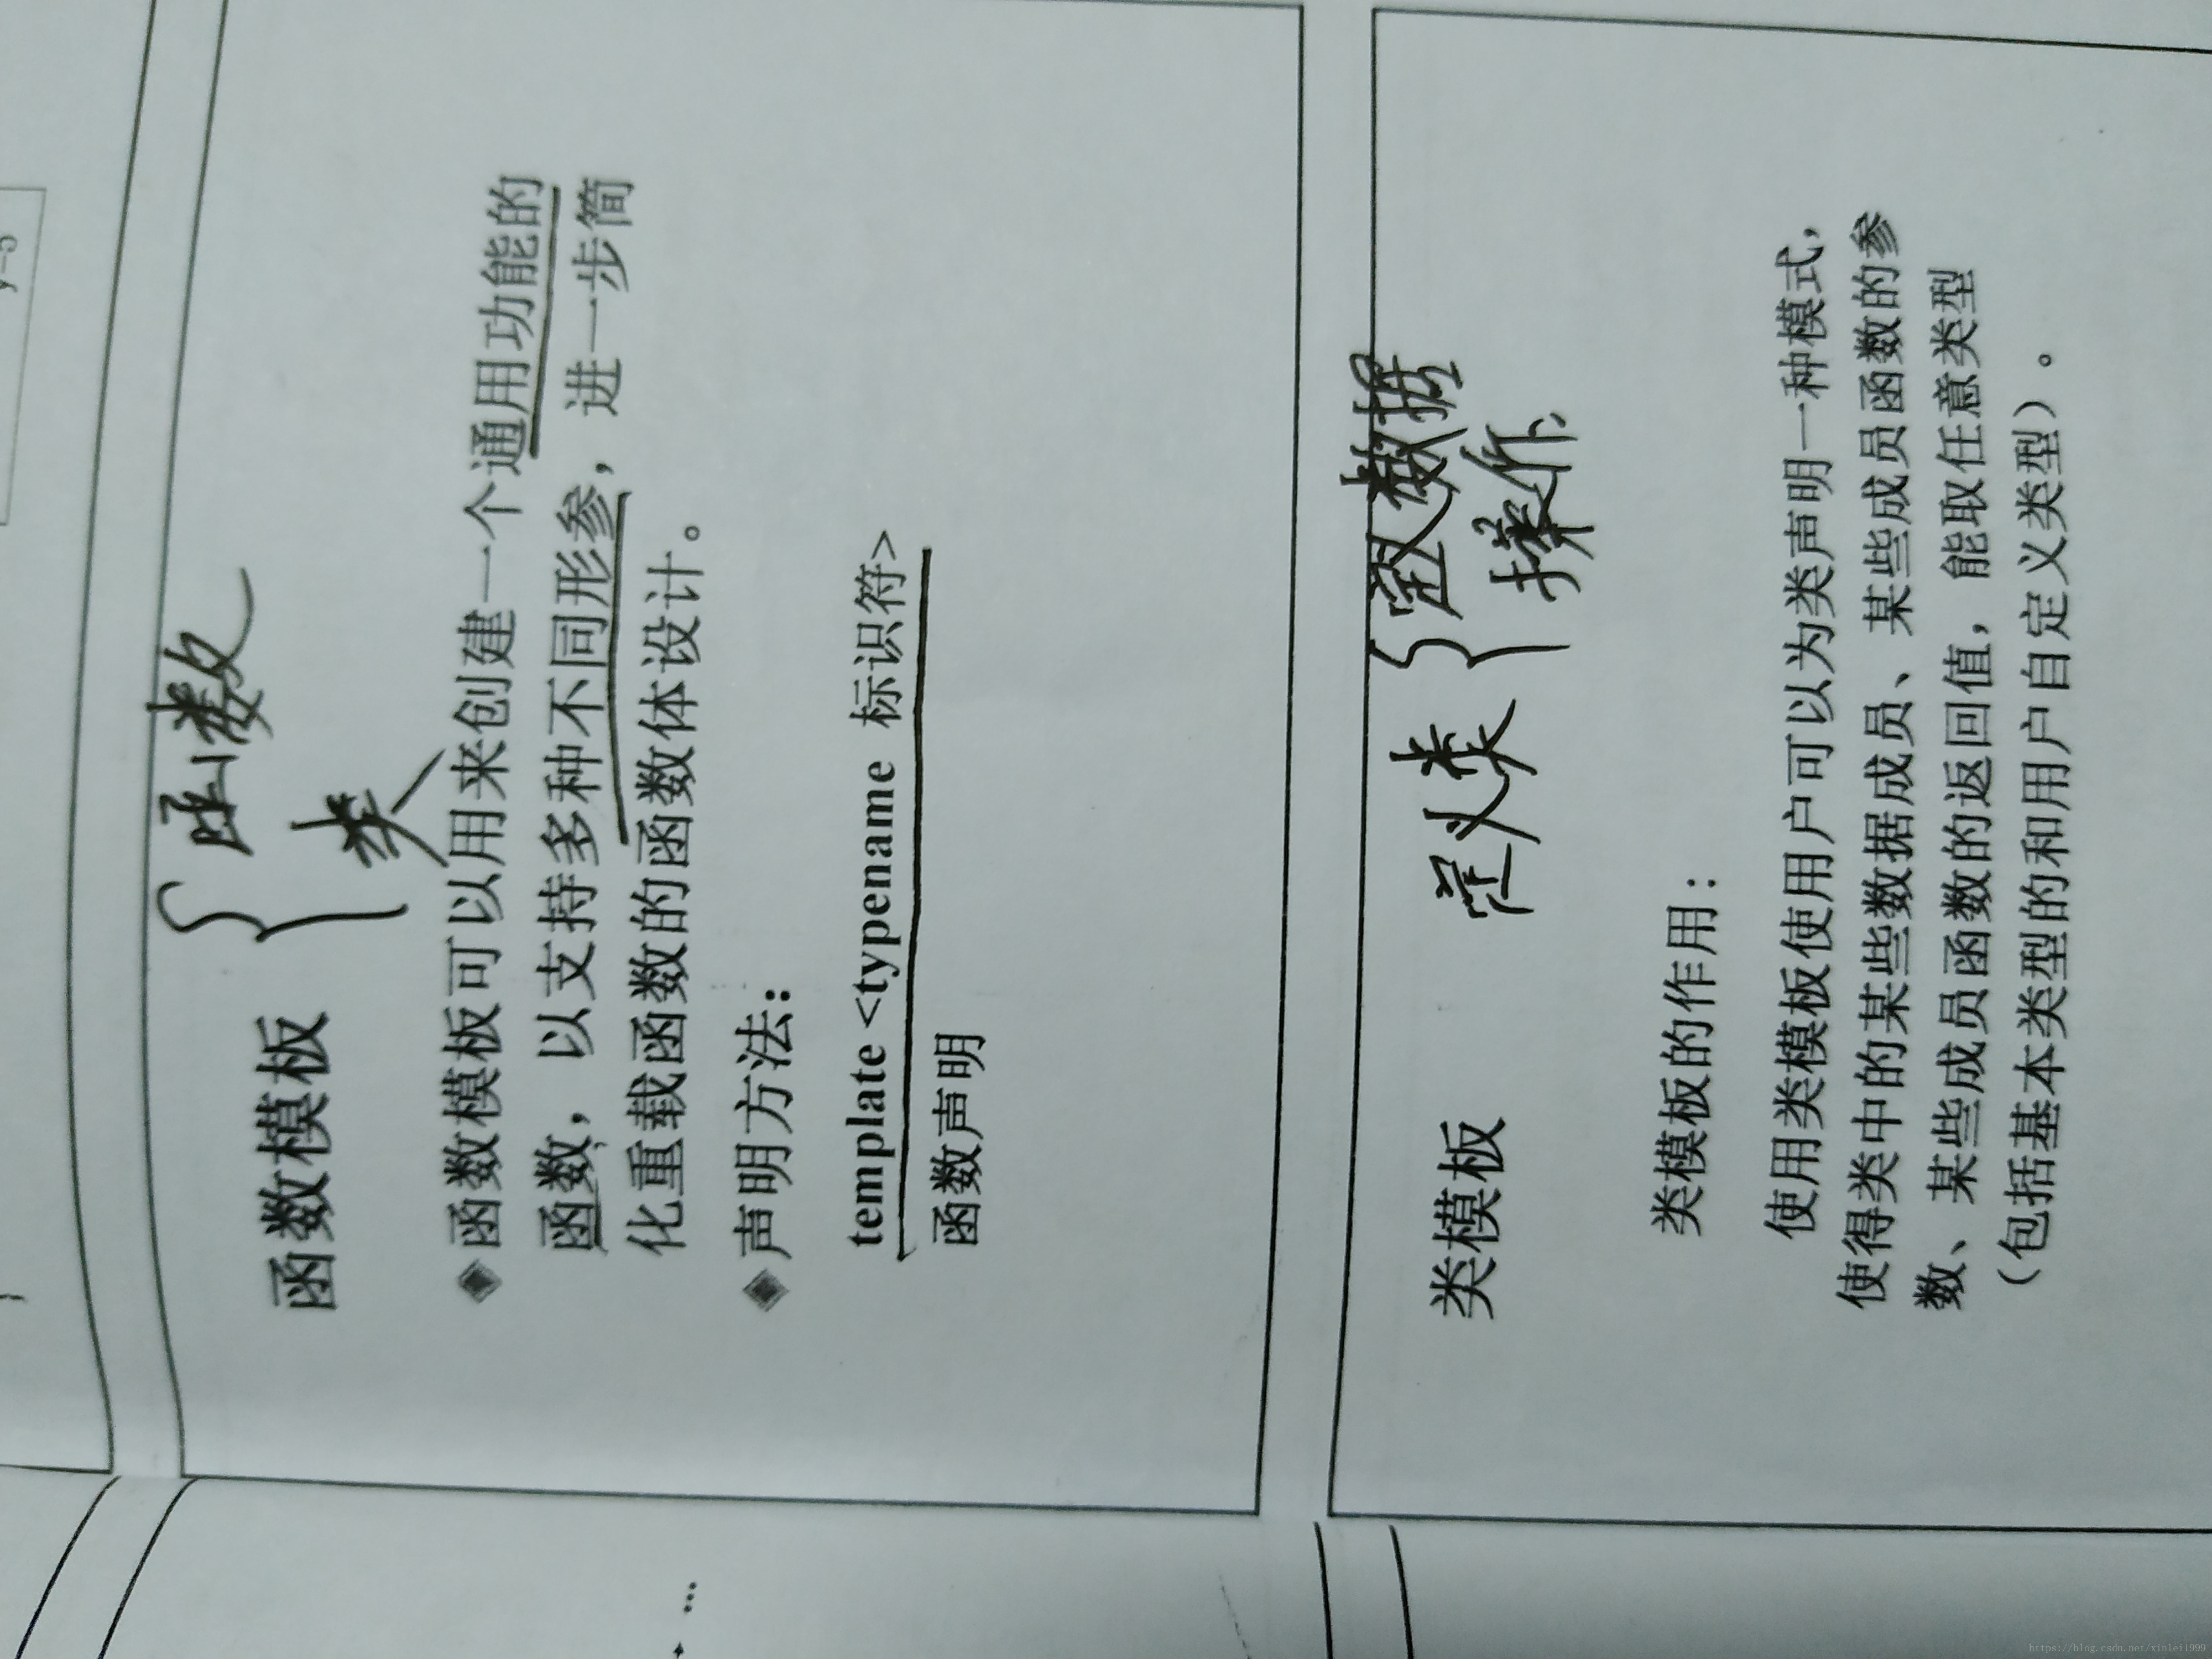 y=5
函数
函数模板
类
◆函数模板可以用来创建一个通用功能的
函数，以支持多种不同形参，进一步简
化重载函数的函数体设计。
◆声明方法：
template <typename 标识符>
函数声明
类模板
定义类
定义数据
操作
类模板的作用：
使用类模板使用户可以为类声明一种模式，
使得类中的某些数据成员、某些成员函数的参
数、某些成员函数的返回值，能取任意类型
（包括基本类型的和用户自定义类型）。
https://blog.csdn.net/xinlei1999